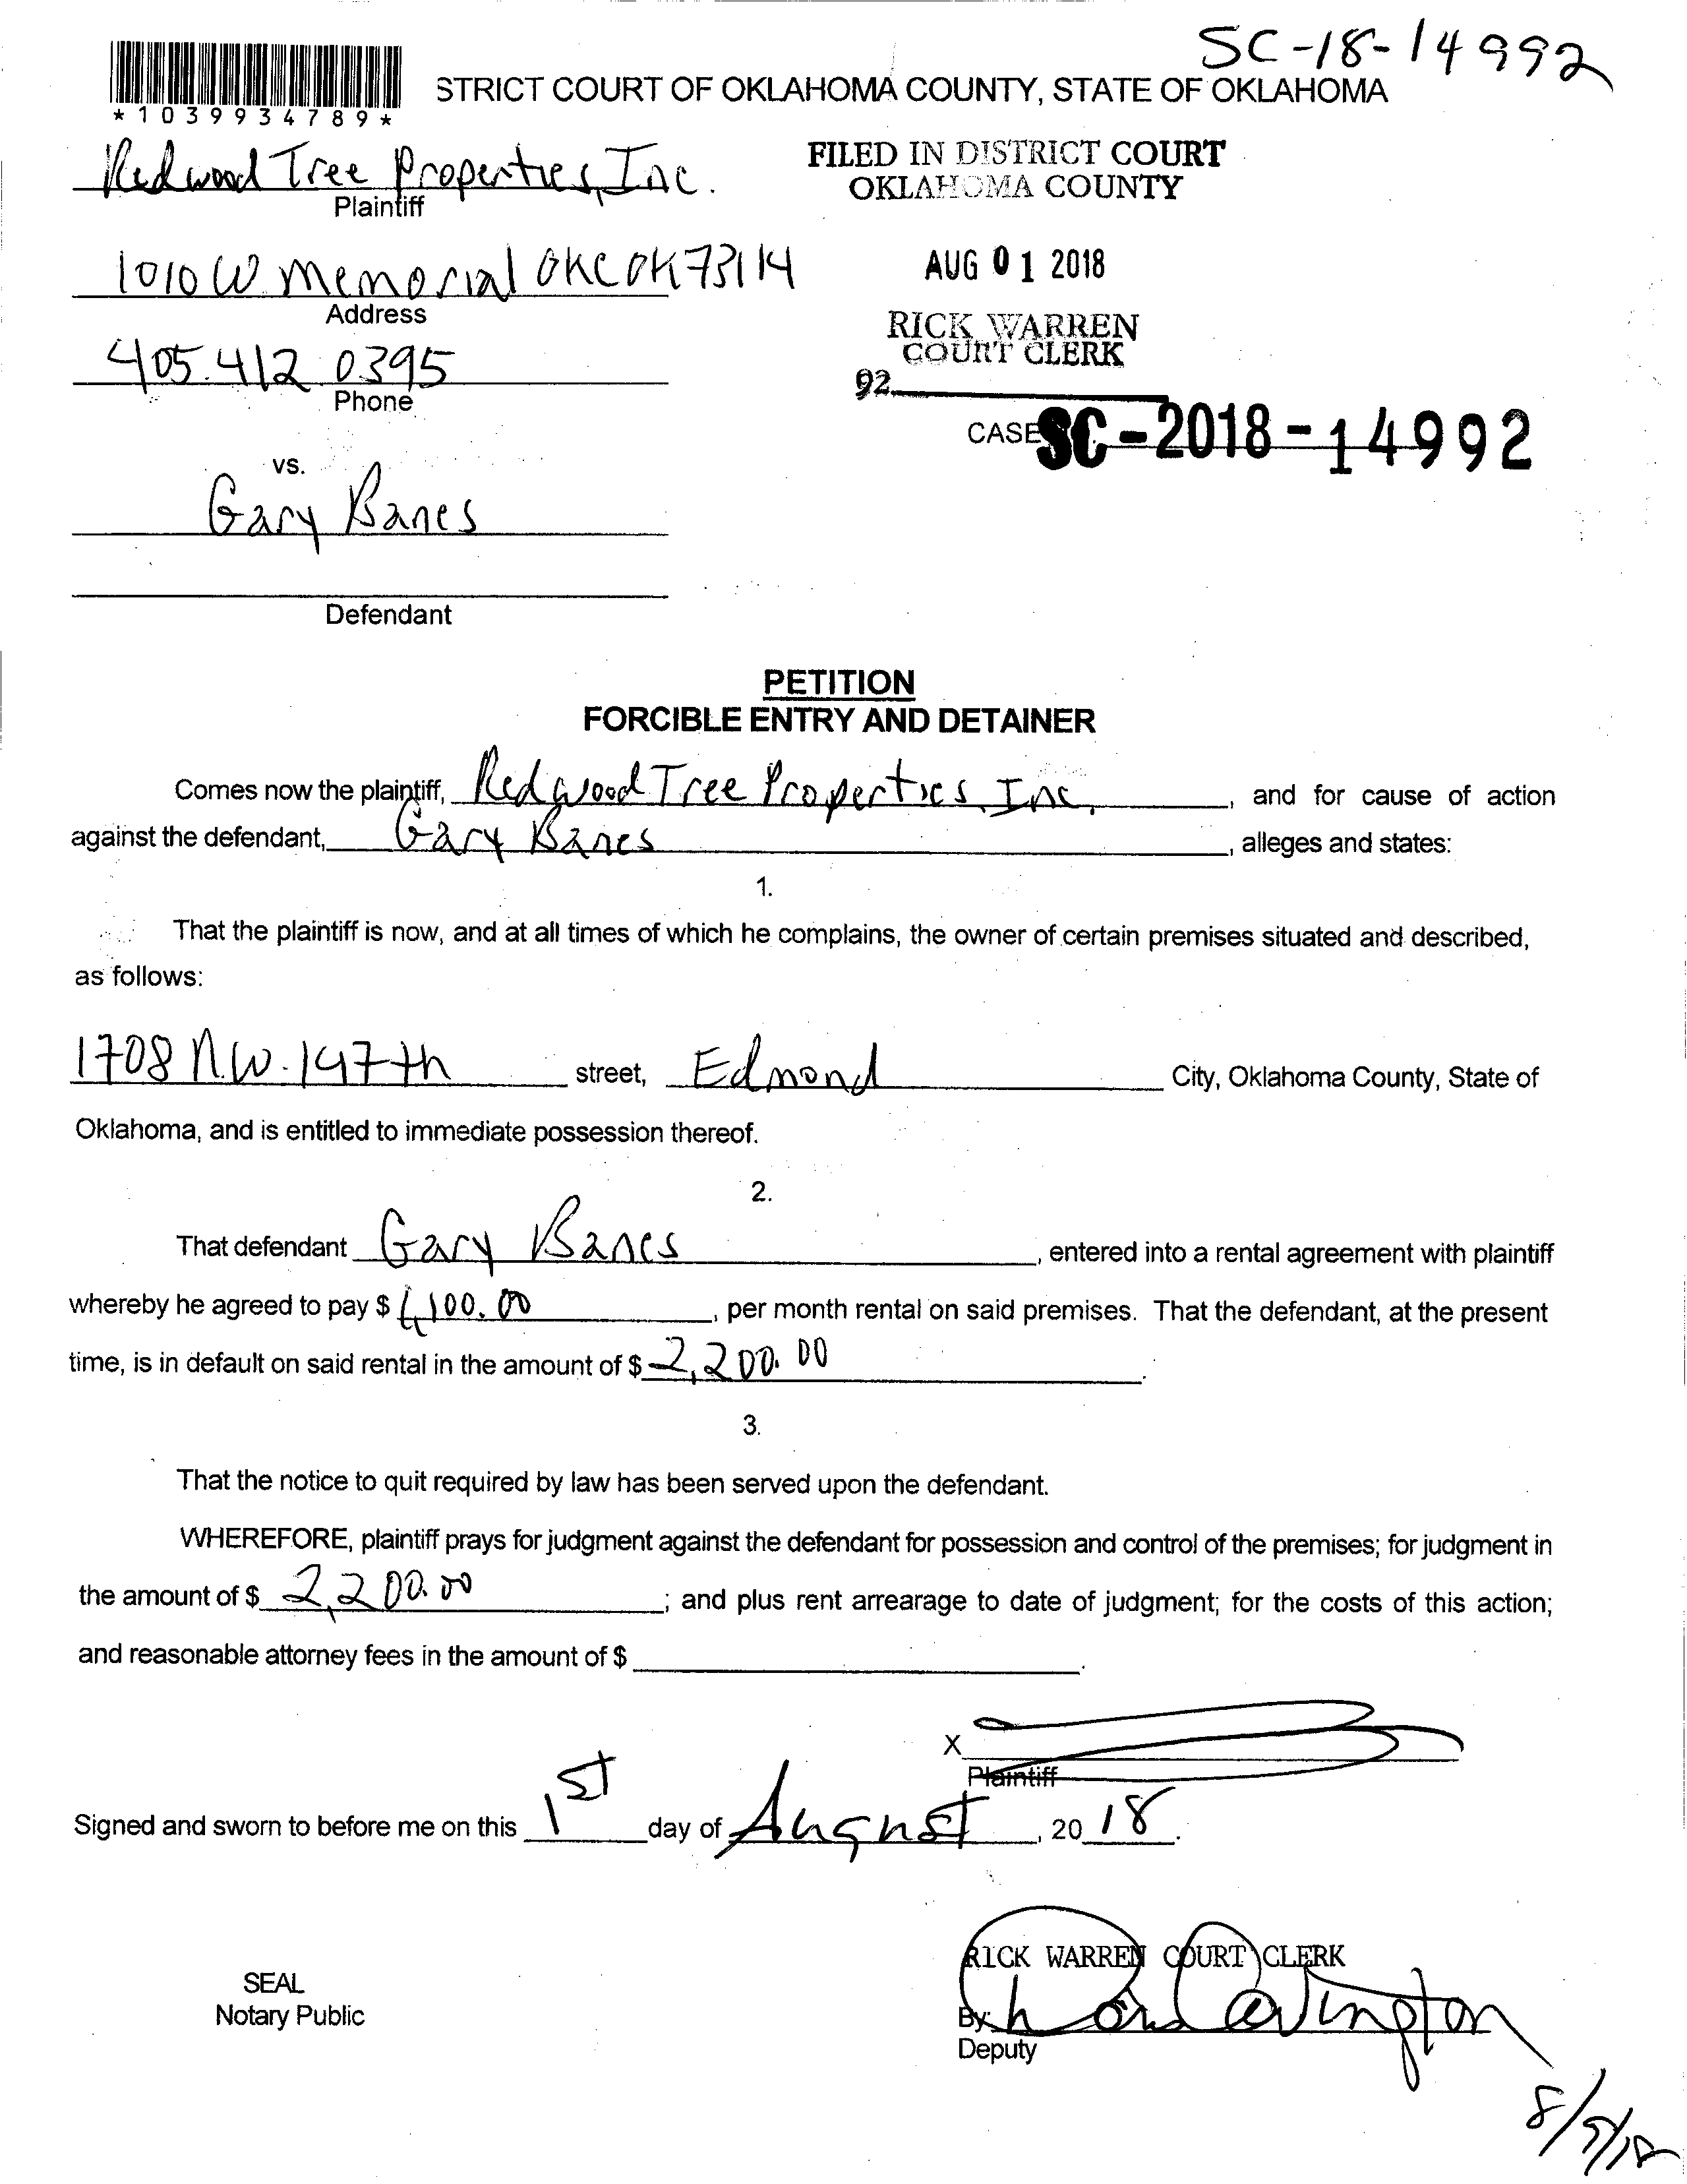 SC-18-14992
STRICT COURT OF OKLAHOMA COUNTY, STATE OF OKLAHOMA
*1039934789*
Redwood Tree Properties, Inc.
Plaintiff
FILED IN DISTRICT COURT
OKLAHOMA COUNTY
1010 W Memorial OKC OK 73114
Address
AUG 01 2018
RICK WARREN
COURT CLERK
405.412 0395
Phone
92
CASE SC-2018-14992
vs.
Gary Banes
Defendant
PETITION
FORCIBLE ENTRY AND DETAINER
Comes now the plaintiff, Redwood Tree Properties, Inc. , and for cause of action
against the defendant, Gary Banes , alleges and states:
1.
That the plaintiff is now, and at all times of which he complains, the owner of certain premises situated and described,
as follows:
1708 N.W. 197th street, Edmond City, Oklahoma County, State of
Oklahoma, and is entitled to immediate possession thereof.
2.
That defendant Gary Banes , entered into a rental agreement with plaintiff
whereby he agreed to pay $ 1,100.00 , per month rental on said premises. That the defendant, at the present
time, is in default on said rental in the amount of $ 2,200.00 .
3.
That the notice to quit required by law has been served upon the defendant.
WHEREFORE, plaintiff prays for judgment against the defendant for possession and control of the premises; for judgment in
the amount of $ 2,200.00 ; and plus rent arrearage to date of judgment; for the costs of this action;
and reasonable attorney fees in the amount of $ .
X
Plaintiff
Signed and sworn to before me on this 1st day of August , 20 18.
RICK WARREN COURT CLERK
SEAL
Notary Public
By:
Deputy